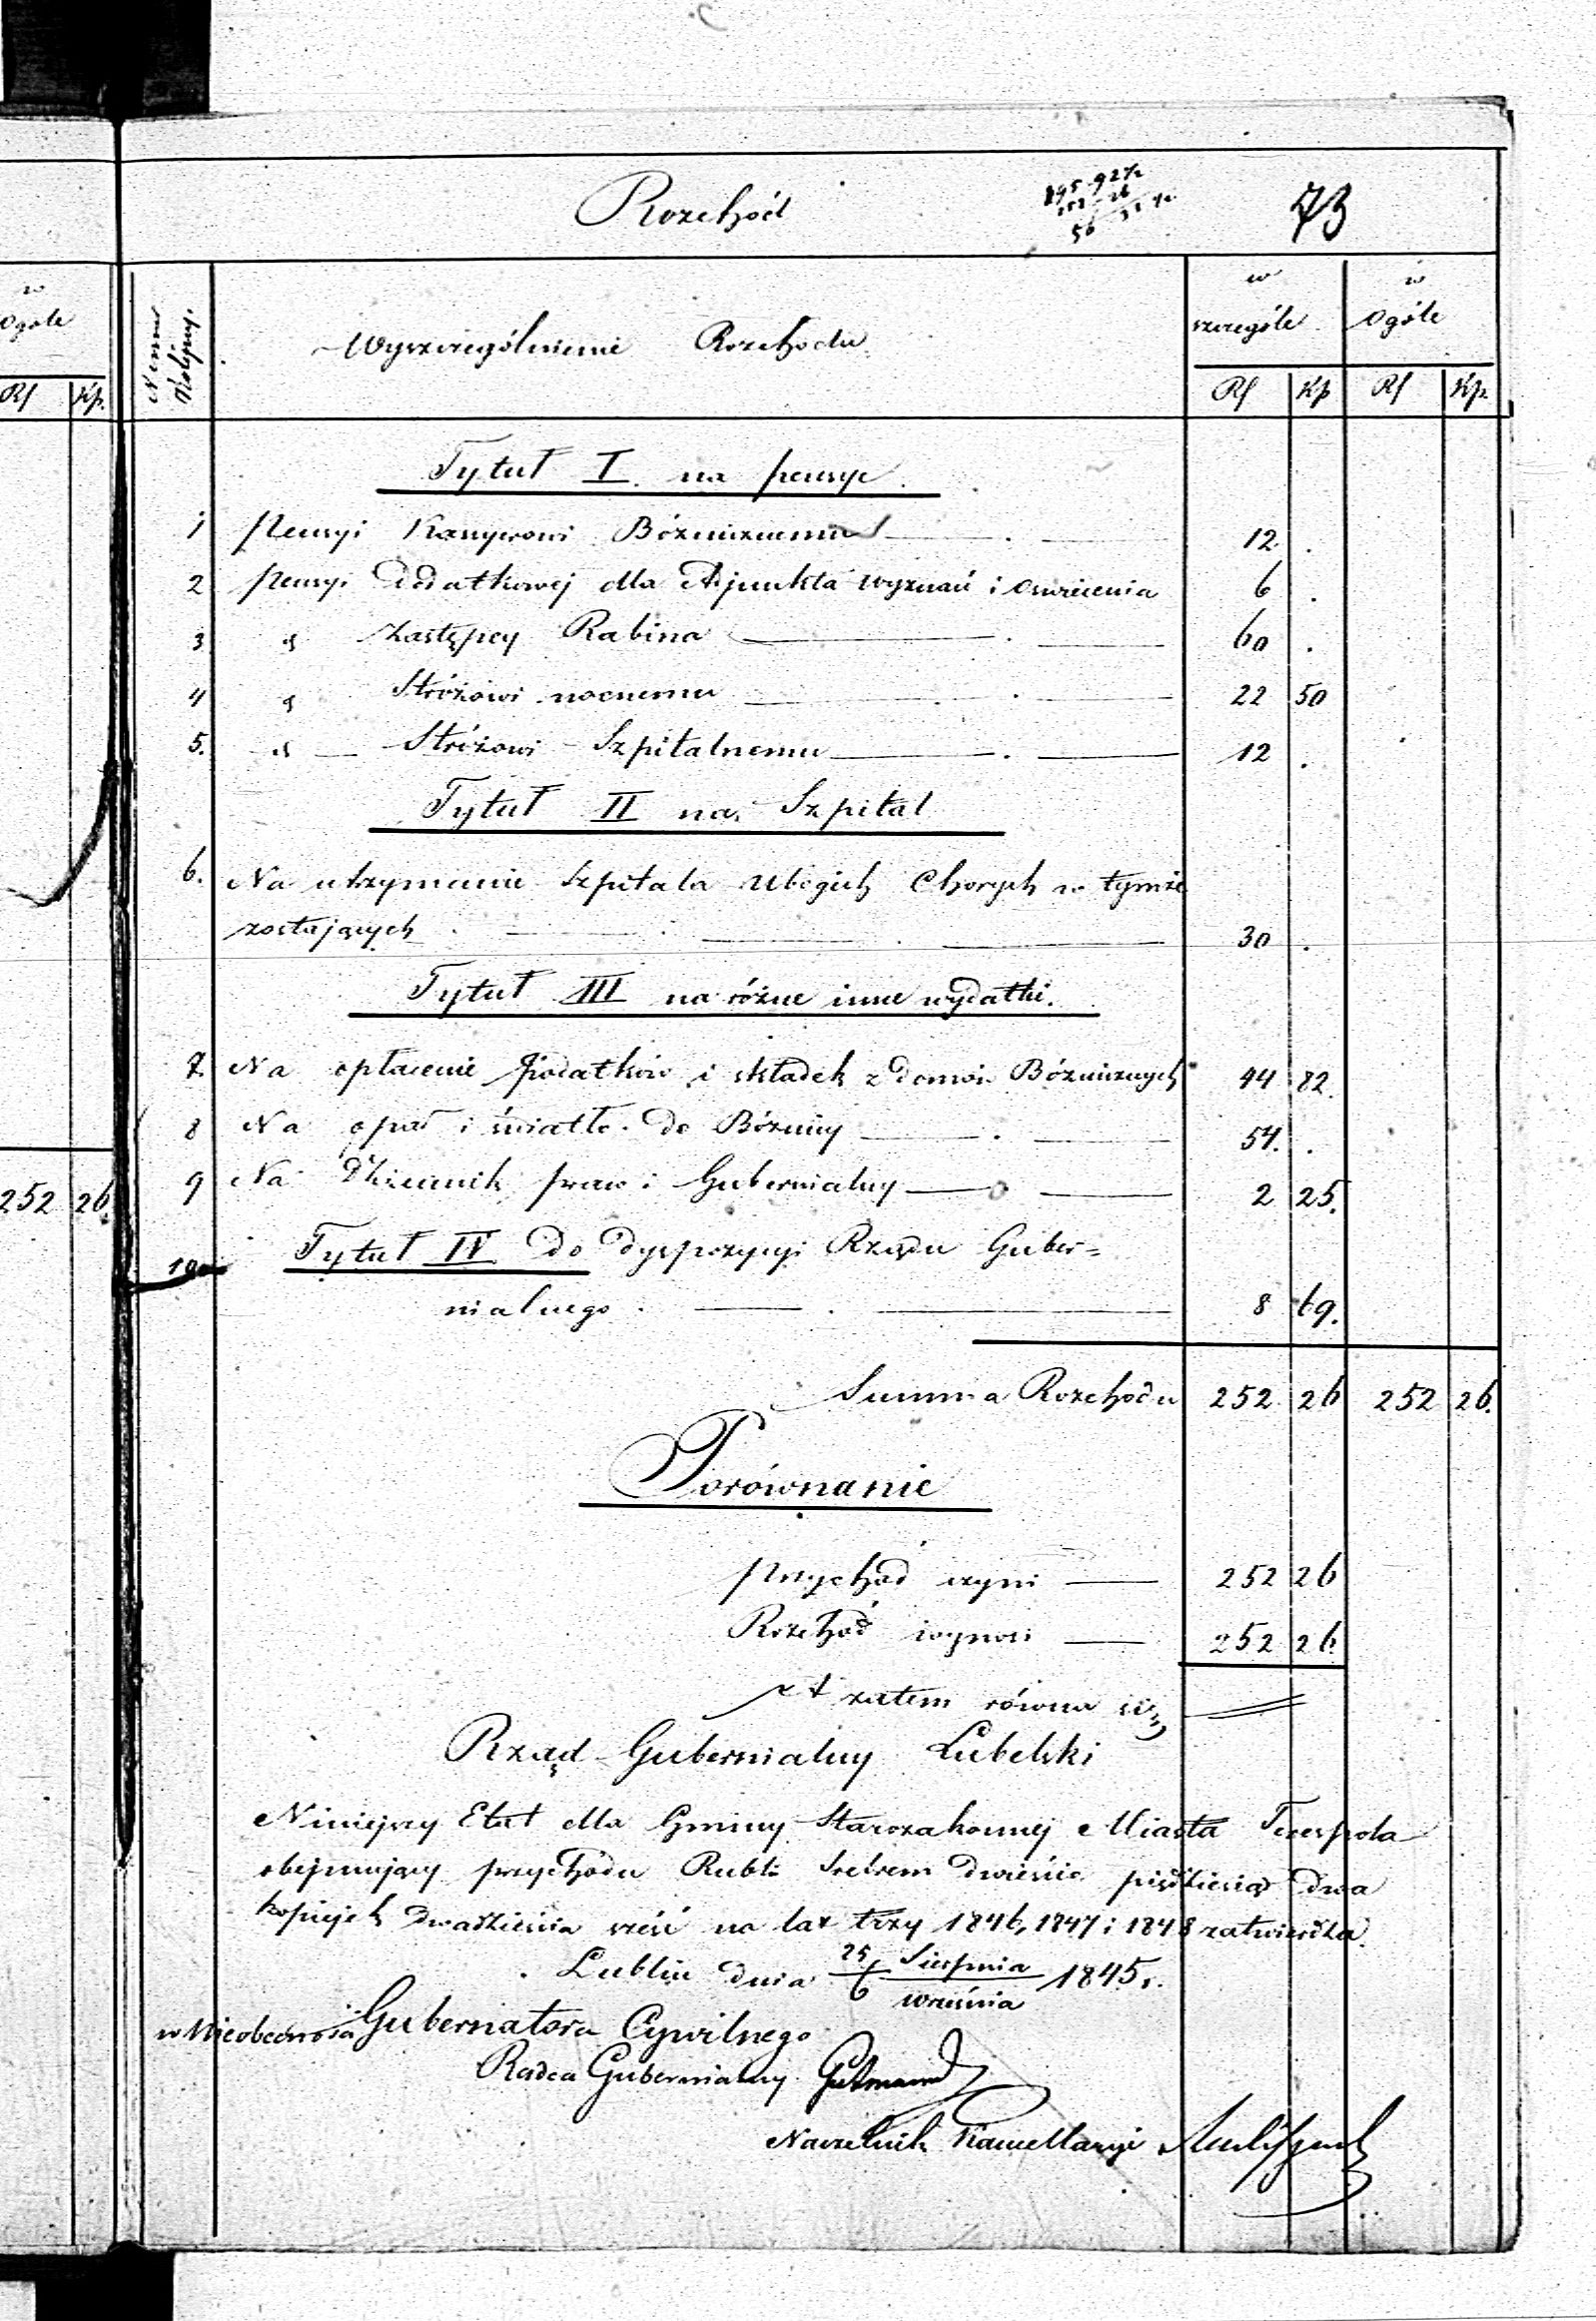 Rozchód
73
w Ogóle
Rs Kp.
252 26.
Numer Kolejny.
Wyszczególnienie Rozchodu
w szczególe
w Ogóle
Rs Kp Rs Kp.
Tytuł I. na pensye.
1 Pensyi Kassyerowi Bóżnicznemu 12 .
2 Pensyi Dodatkowej dla Adjunkta wyznań i oswiecenia 6 .
3 " Zastępcy Rabina 60 .
4 " Stróżowi nocnemu 22 50
5. " Stróżowi Szpitalnemu 12 .
Tytuł II na Szpital
6. Na utrzymanie Szpitala Ubogich Chorych w tymże
zostających 30 .
Tytuł III na różne inne wydatki.
7. Na opłacenie Podatków i składek z domów Bóżnicznych 44 82.
8 Na opał i światło do Bóżnicy 54. .
9 Na Dziennik praw i Gubernialny 2 25.
10 Tytuł IV do dyspozycyi Rządu Guber=
nialnego 8 69.
Summa Rozchodu 252 26 252 26.
Porównanie
Przychód czyni 252 26
Rozchód wynosi 252 26.
zatem równa się
Rząd Gubernialny Lubelski
Niniejszy Etat dla Gminy Starozakonnej Miasta Terespola
obejmujący przychodu Rubli Srebrem dwieście pięćdziesiąt dwa
kopiejek dwadzieścia sześć na lat trzy 1846, 1847 i 1848 zatwierdza.
Lublin dnia 25/6 Sierpnia/września 1845 r.
w Nieobecności Gubernatora Cywilnego
Radca Gubernialny Gutmann
Naczelnik Kancellaryi